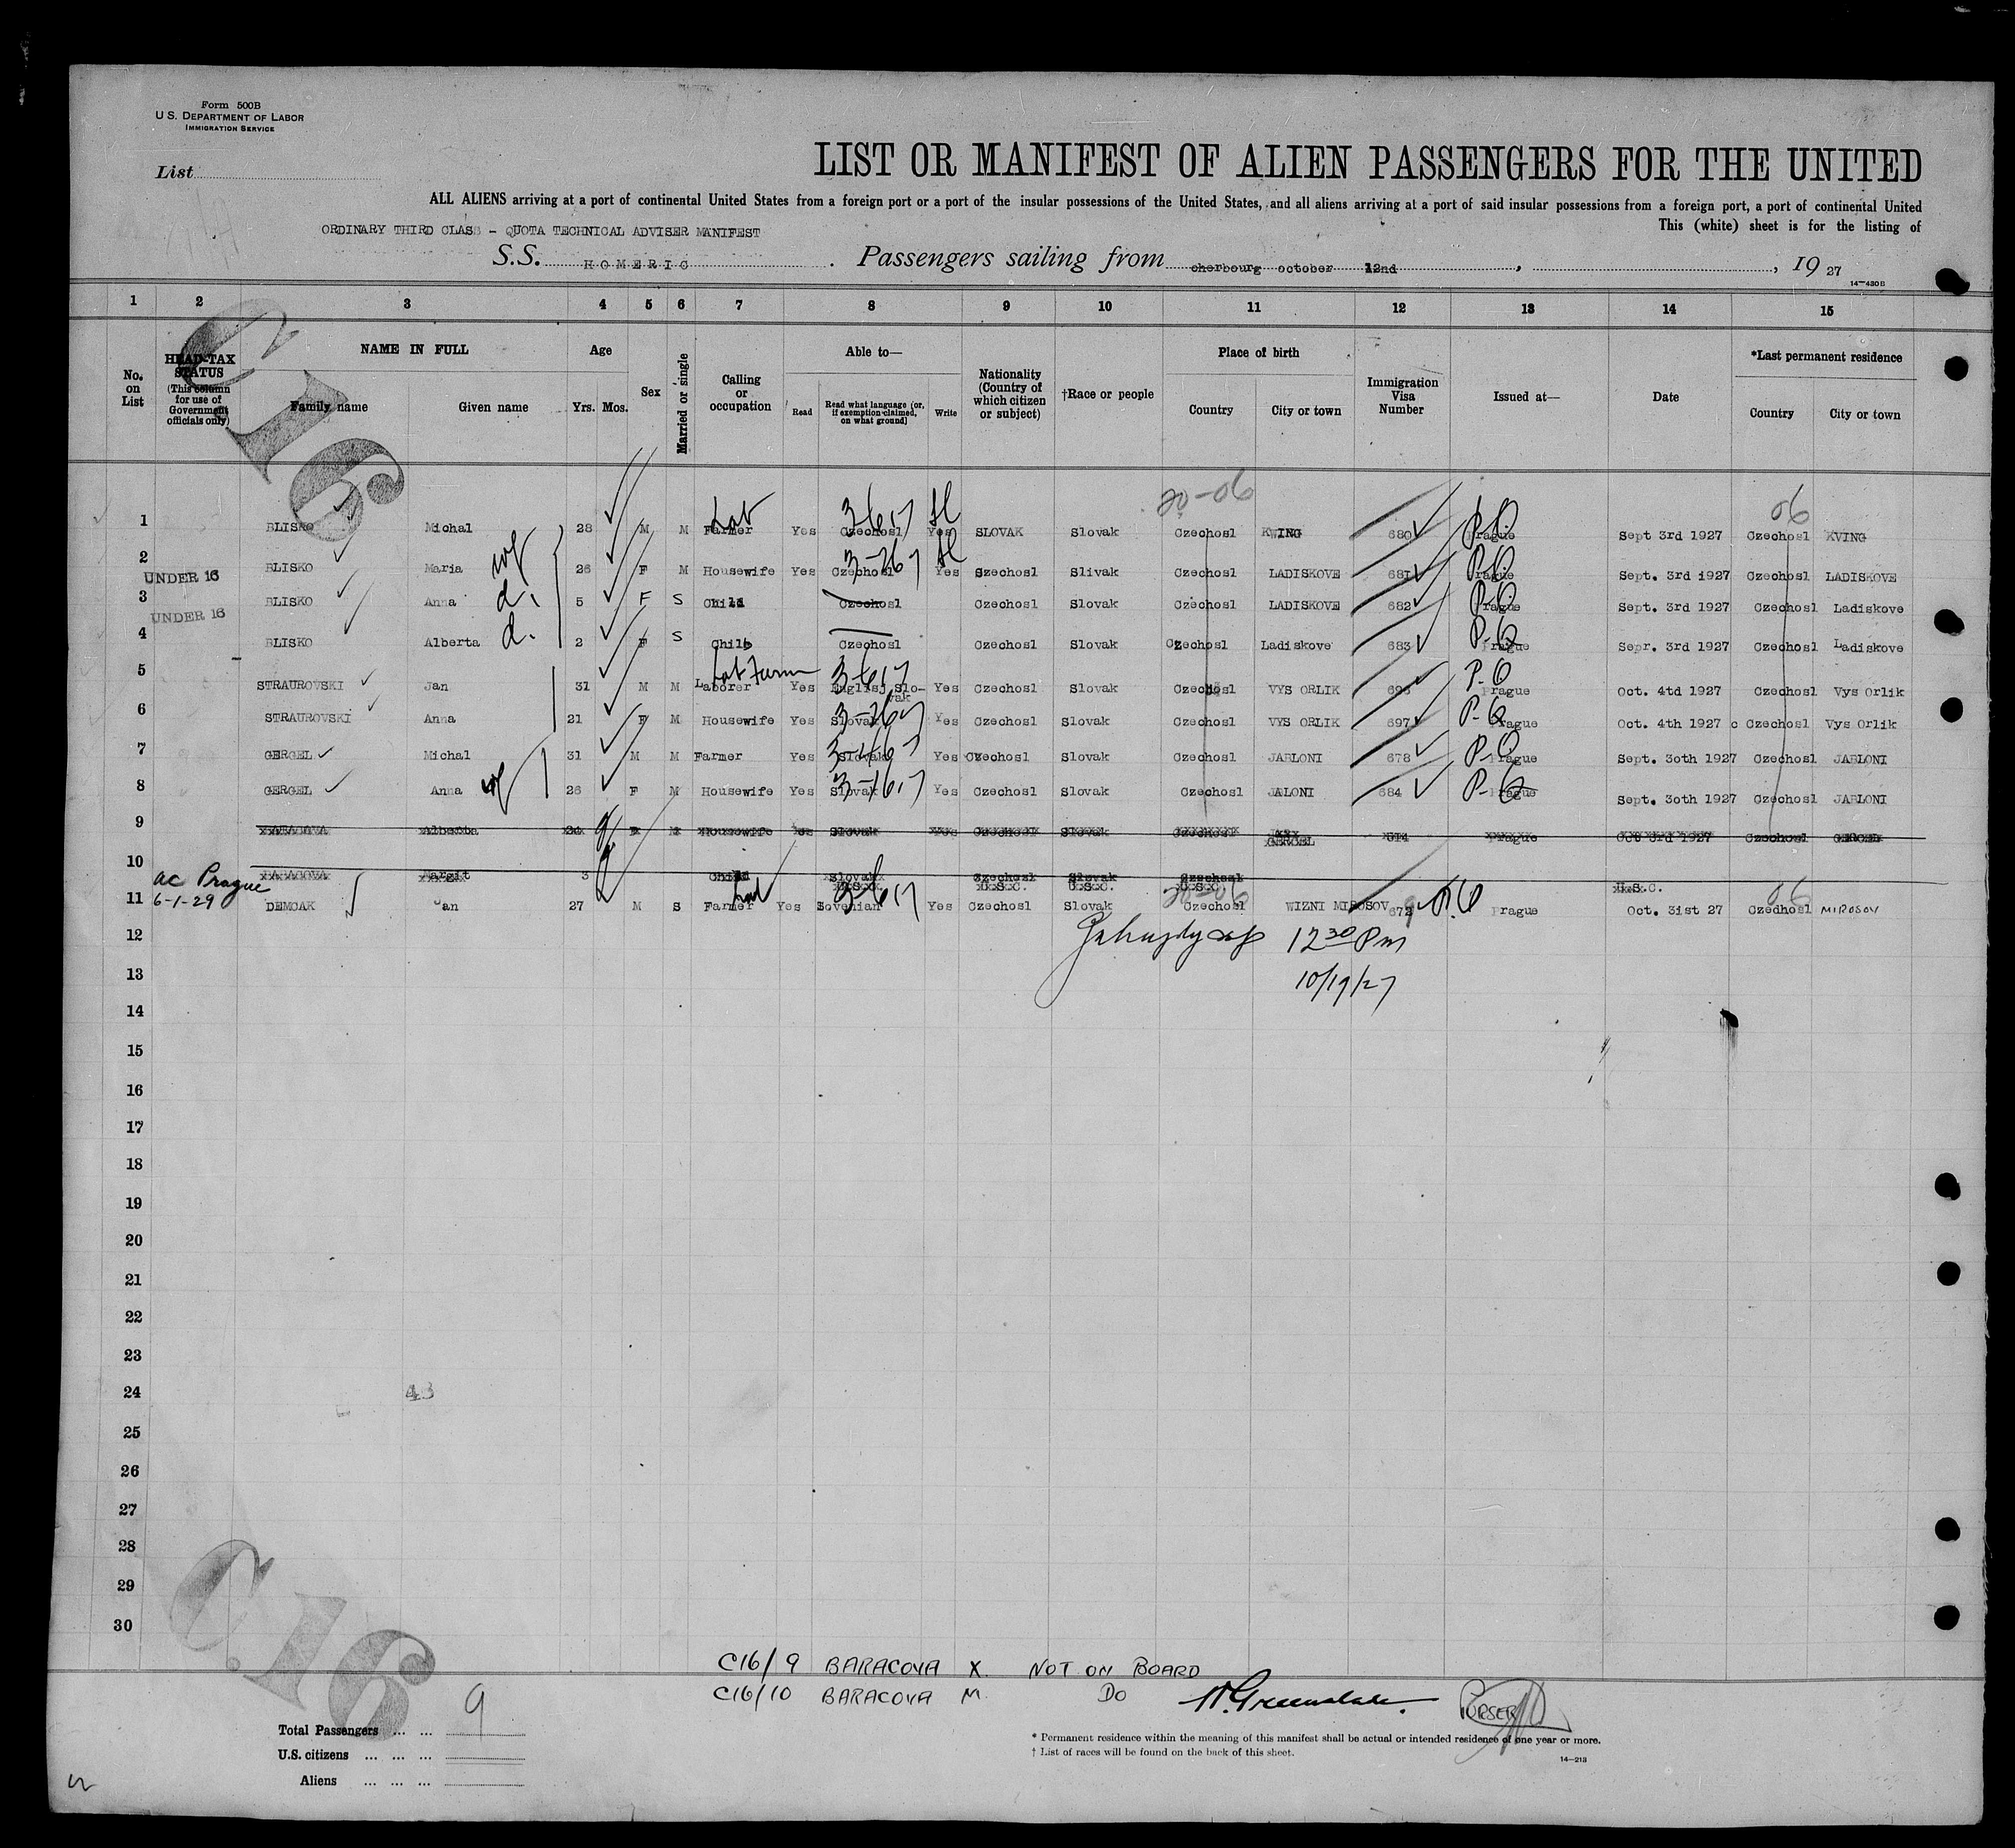 Form 500B
U.S. DEPARTMENT OF LABOR
IMMIGRATION SERVICE
List
LIST OR MANIFEST OF ALIEN PASSENGERS FOR THE UNITED
ALL ALIENS arriving at a port of continental United States from a foreign port or a port of the insular possessions of the United States, and all aliens arriving at a port of said insular possessions from a foreign port, a port of continental United
This (white) sheet is for the listing of
ORDINARY THIRD CLASS - QUOTA TECHNICAL ADVISER MANIFEST
S.S. HOMERIC . Passengers sailing from cherbourg october 12nd , , 19 27
14—430B
1 2 3 4 5 6 7 8 9 10 11 12 13 14 15
No. on List
HEAD-TAX STATUS (This column for use of Government officials only)
NAME IN FULL
Family name Given name
Age
Yrs. Mos.
Sex
Married or single
Calling or occupation
Able to—
Read Read what language (or, if exemption claimed, on what ground) Write
Nationality (Country of which citizen or subject)
†Race or people
Place of birth
Country City or town
Immigration Visa Number
Issued at—
Date
*Last permanent residence
Country City or town
C16
20-06 06
1 BLISKO Michal 28 M M Farmer Lab Yes Czechosl Yes SLOVAK Slovak Czechosl KWING 680 Prague Sept 3rd 1927 Czechosl KVING
2 BLISKO Maria wf 26 F M Housewife Yes Czechosl Yes Czechosl Slivak Czechosl LADISKOVE 681 Prague Sept. 3rd 1927 Czechosl LADISKOVE
UNDER 16
3 BLISKO Anna d. 5 F S Child Czechosl Czechosl Slovak Czechosl LADISKOVE 682 Prague Sept. 3rd 1927 Czechosl Ladiskove
UNDER 16
4 BLISKO Alberta d. 2 F S Chilb Czechosl Czechosl Slovak Czechosl Ladiskove 683 Prague Sepr. 3rd 1927 Czechosl Ladiskove
5 STRAUROVSKI Jan 31 M M Laborer Lab Farm Yes Englisj Slo-vak Yes Czechosl Slovak Czechosl VYS ORLIK 696 Prague Oct. 4td 1927 Czechosl Vys Orlik
6 STRAUROVSKI Anna 21 F M Housewife Yes Slovak Yes Czechosl Slovak Czechosl VYS ORLIK 697 Prague Oct. 4th 1927 c Czechosl Vys Orlik
7 GERGEL Michal 31 M M Farmer Yes Slovak Yes Czechosl Slovak Czechosl JABLONI 678 Prague Sept. 3oth 1927 Czechosl JABLONI
8 GERGEL Anna wf 26 F M Housewife Yes Slovak Yes Czechosl Slovak Czechosl JALONI 684 Prague Sept. 3oth 1927 Czechosl JABLONI
9 Alberta Housewife Yes Slovak Slovak Czechosl GERGEL Prague Oct 3rd 1927 Czechosl GERGEL
10 Margit 3 Child Slovak Czechosl Slovak Czechosl
U.S.C. U.S.C. U.S.C. U.S.C.
ac Prague
6-1-29
20-06 06
11 DEMCAK Jan 27 M S Farmer Lab Yes Sovenian Yes Czechosl Slovak Czechosl WIZNI MIROSOV 672 Prague Oct. 31st 27 Czedhosl MIROSOV
12 12 30 Pm
13 10/19/27
14
15
16
17
18
19
20
21
22
23
24 43
25
26
27
28
29
30
C.16
C16/9 BARACOVA X. NOT ON BOARD
C16/10 BARACOVA M. DO PURSER
Total Passengers ... ... 9
U.S. citizens ... ... ...
Aliens ... ... ...
* Permanent residence within the meaning of this manifest shall be actual or intended residence of one year or more.
† List of races will be found on the back of this sheet.
14—213